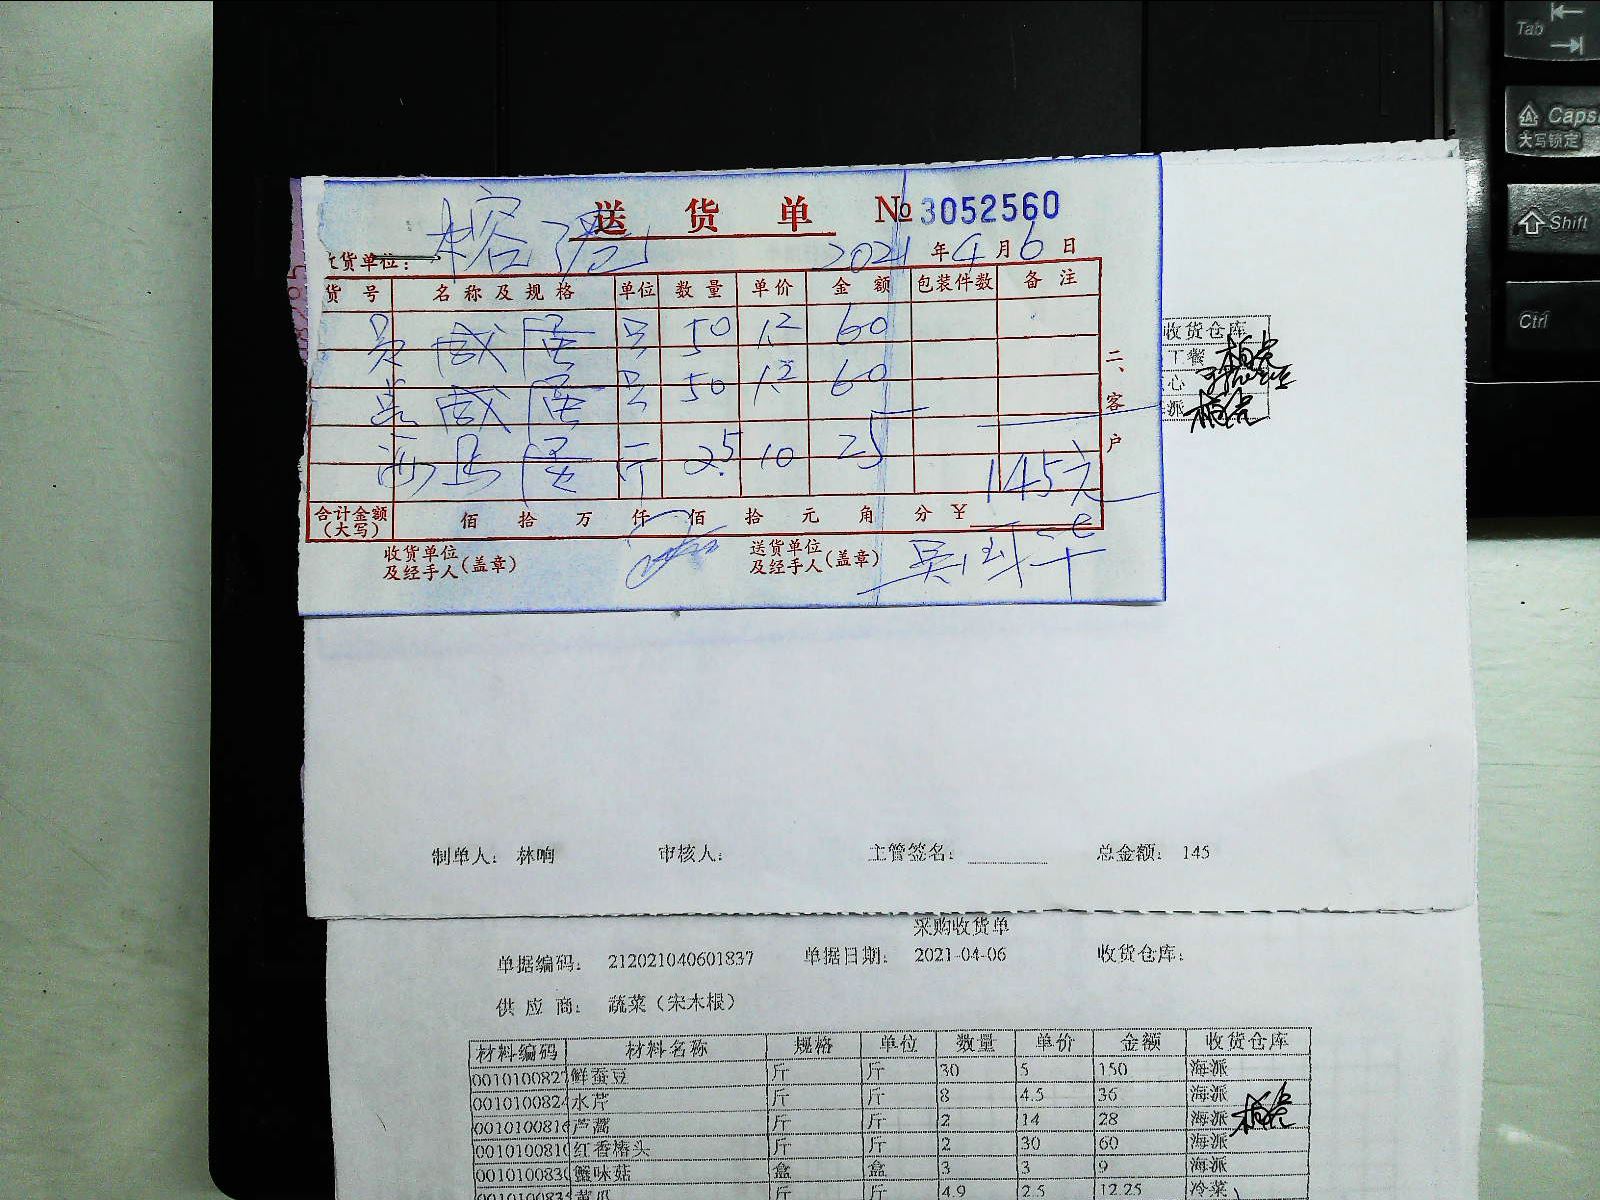 送货单 №3052560
收货单位: 2021年4月6日
货号 名称及规格 单位 数量 单价 金额 包装件数 备注
咸蛋 只 50 1.2 60
咸蛋 只 50 1.2 60
斤 2.5 10 25
145元
合计金额(大写) 佰 拾 万 仟 佰 拾 元 角 分 ¥
收货单位及经手人(盖章) 送货单位及经手人(盖章)
二、客户
收货仓库
丁餐
心
派
制单人: 林响 审核人: 主管签名: 总金额: 145
采购收货单
单据编码: 212021040601837 单据日期: 2021-04-06 收货仓库:
供应商: 蔬菜(宋木根)
材料编码 材料名称 规格 单位 数量 单价 金额 收货仓库
0010100827 鲜蚕豆 斤 斤 30 5 150 海派
001010082 水芹 斤 斤 8 4.5 36 海派
001010081 芦蒿 斤 斤 2 14 28 海派
001010081 红香椿头 斤 斤 2 30 60 海派
001010083 蟹味菇 盒 盒 3 3 9 海派
001010083 黄瓜 斤 斤 4.9 2.5 12.25 冷菜
Tab
Caps
大写锁定
Shift
Ctrl